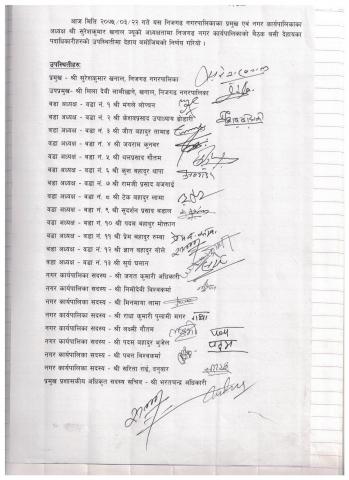 आज मिति २०७७/०३/२२ गते यस निजगढ नगरपालिकाका प्रमुख एवं नगर कार्यपालिकाका
अध्यक्ष श्री सुरेशकुमार खनाल ज्यूको अध्यक्षतामा निजगढ नगर कार्यपालिकाको बैठक बसी देहायका
पदाधिकारीहरुको उपस्थितीमा देहाय बमोजिमको निर्णय गरियो ।
उपस्थितीहरु:
प्रमुख - श्री सुरेशकुमार खनाल, निजगढ नगरपालिका
उपप्रमुख- श्री मिला देवी लामीछाने, निजगढ नगरपालिका
वडा अध्यक्ष - वडा नं. १ श्री मंगले लोप्चन
वडा अध्यक्ष - वडा नं. २ श्री केशवप्रसाद उपाध्याय
वडा अध्यक्ष - वडा नं. ३ श्री जीत बहादुर तामाङ
वडा अध्यक्ष - वडा नं. ४ श्री जयराम कुनवर
वडा अध्यक्ष - वडा नं. ५ श्री धनप्रसाद गौतम
वडा अध्यक्ष - वडा नं. ६ श्री कुल बहादुर थापा
वडा अध्यक्ष - वडा नं. ७ श्री रामजी प्रसाद बजगाई
वडा अध्यक्ष - वडा नं. ८ श्री टेक बहादुर लामा
वडा अध्यक्ष - वडा नं. ९ श्री सुदर्शन प्रसाद बडाल
वडा अध्यक्ष - वडा नं. १० श्री पदम बहादुर मोक्तान
वडा अध्यक्ष - वडा नं. ११ श्री प्रेम बहादुर रुम्बा
वडा अध्यक्ष - वडा नं. १२ श्री ज्ञान बहादुर थोले
वडा अध्यक्ष - वडा नं. १३ श्री सुर्य प्रसान
नगर कार्यपालिका सदस्य - श्री जगत कुमारी अधिकारी
नगर कार्यपालिका सदस्य - श्री निमीदेवी विश्वकर्मा
नगर कार्यपालिका सदस्य - श्री मिनमाया लामा
नगर कार्यपालिका सदस्य - श्री राधा कुमारी पुलामी मगर राधा
नगर कार्यपालिका सदस्य - श्री लक्ष्मी गौतम
नगर कार्यपालिका सदस्य - श्री पदम बहादुर भुजेल पदम
नगर कार्यपालिका सदस्य - श्री पवन विश्वकर्मा
नगर कार्यपालिका सदस्य - श्री सरिता राई, दनुवार
प्रमुख प्रशासकीय अधिकृत सदस्य सचिव - श्री भरतचन्द्र अधिकारी